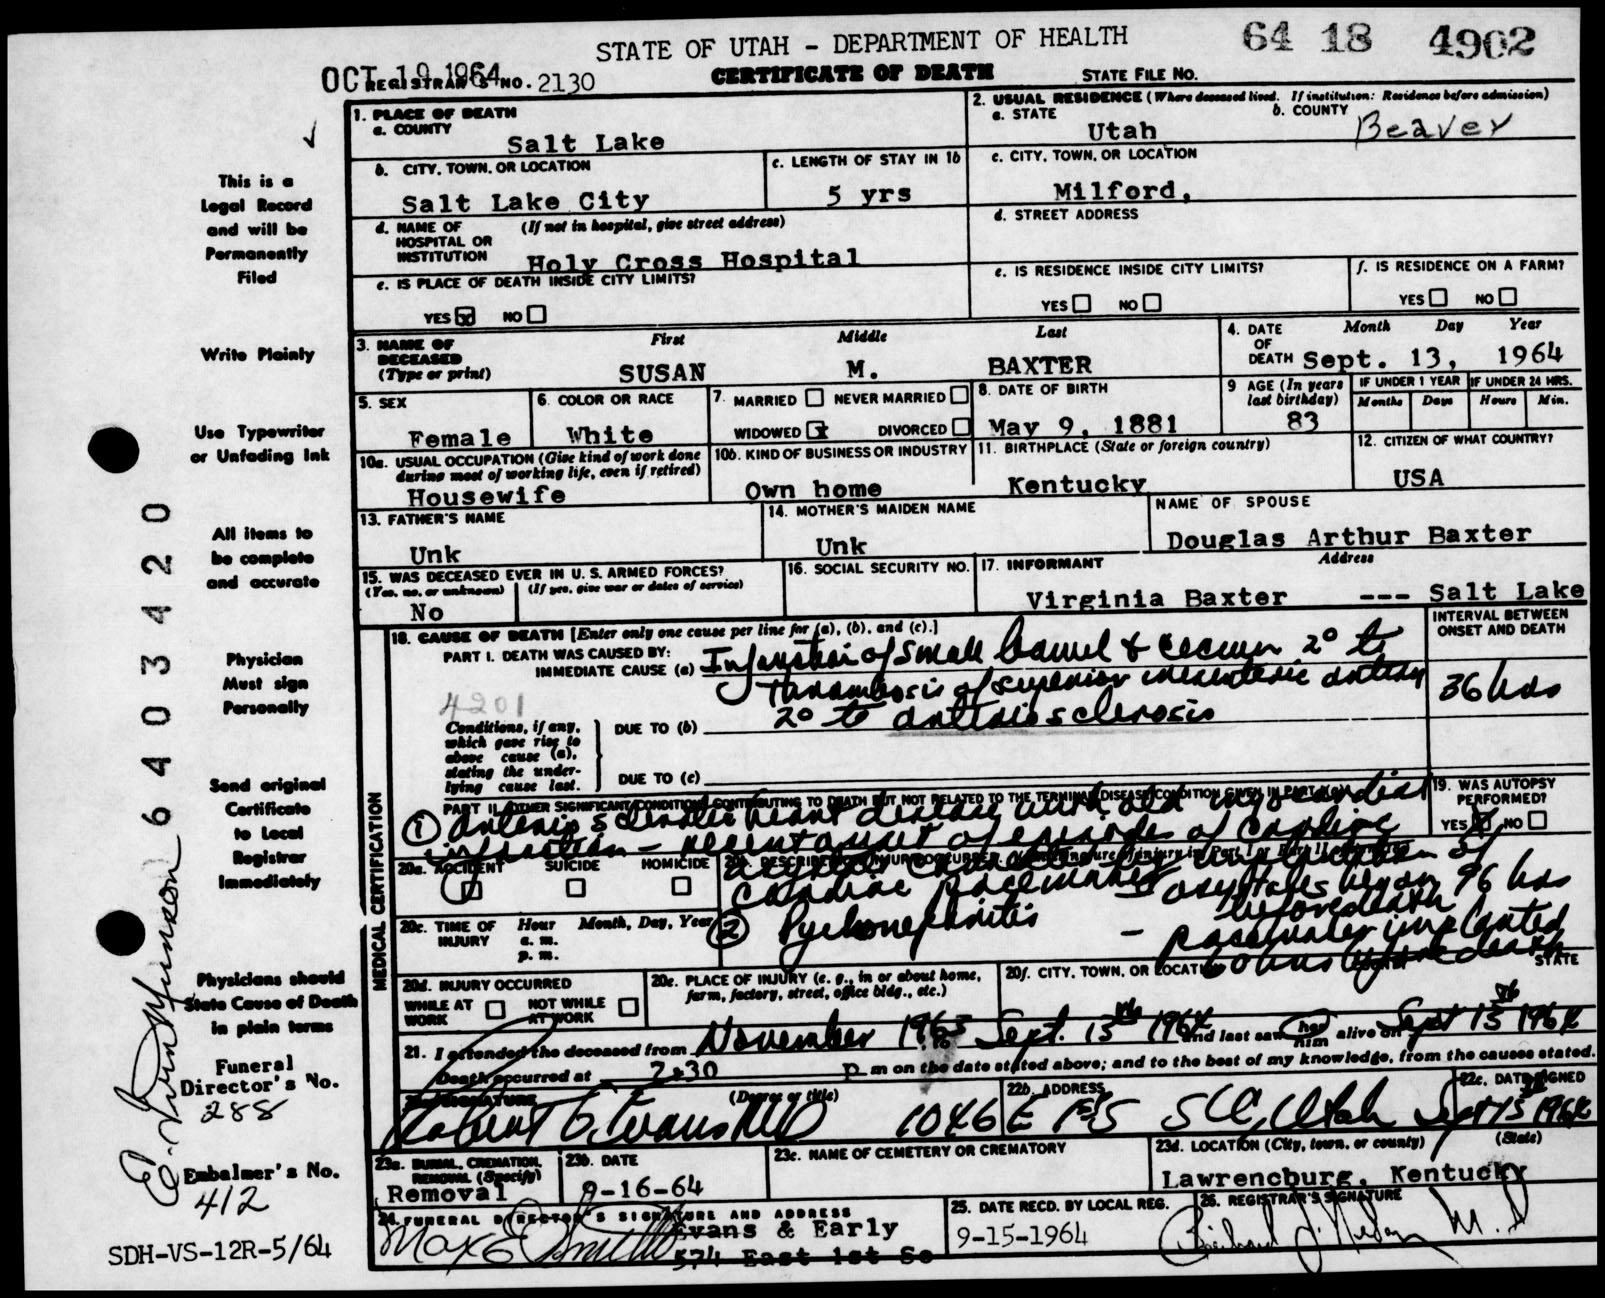 STATE OF UTAH - DEPARTMENT OF HEALTH
64 18 4902
OCT 19 1964
REGISTRAR'S NO. 2130
CERTIFICATE OF DEATH
STATE FILE No.
1. PLACE OF DEATH
a. COUNTY
Salt Lake
2. USUAL RESIDENCE (Where deceased lived. If institution: Residence before admission)
a. STATE
Utah
b. COUNTY
Beaver
b. CITY, TOWN, OR LOCATION
Salt Lake City
c. LENGTH OF STAY IN 1b
5 yrs
c. CITY, TOWN, OR LOCATION
Milford,
d. NAME OF HOSPITAL OR INSTITUTION
(If not in hospital, give street address)
Holy Cross Hospital
d. STREET ADDRESS
e. IS PLACE OF DEATH INSIDE CITY LIMITS?
YES X NO
e. IS RESIDENCE INSIDE CITY LIMITS?
YES NO
f. IS RESIDENCE ON A FARM?
YES NO
3. NAME OF DECEASED
(Type or print)
First Middle Last
SUSAN M. BAXTER
4. DATE OF DEATH
Month Day Year
Sept. 13, 1964
5. SEX
Female
6. COLOR OR RACE
White
7. MARRIED NEVER MARRIED
WIDOWED X DIVORCED
8. DATE OF BIRTH
May 9, 1881
9 AGE (In years last birthday)
83
IF UNDER 1 YEAR
Months Days
IF UNDER 24 HRS.
Hours Min.
10a. USUAL OCCUPATION (Give kind of work done during most of working life, even if retired)
Housewife
10b. KIND OF BUSINESS OR INDUSTRY
Own home
11. BIRTHPLACE (State or foreign country)
Kentucky
12. CITIZEN OF WHAT COUNTRY?
USA
13. FATHER'S NAME
Unk
14. MOTHER'S MAIDEN NAME
Unk
NAME OF SPOUSE
Douglas Arthur Baxter
15. WAS DECEASED EVER IN U. S. ARMED FORCES?
(Yes, no, or unknown) (If yes, give war or dates of service)
No
16. SOCIAL SECURITY NO.
17. INFORMANT Address
Virginia Baxter --- Salt Lake
MEDICAL CERTIFICATION
18. CAUSE OF DEATH [Enter only one cause per line for (a), (b), and (c).]
PART I. DEATH WAS CAUSED BY:
IMMEDIATE CAUSE (a) Infarction of small bowel & cecum 2° to
thrombosis of superior mesenteric artery
4201
Conditions, if any, which gave rise to above cause (a), stating the underlying cause last.
DUE TO (b) 2° to arteriosclerosis
DUE TO (c)
INTERVAL BETWEEN ONSET AND DEATH
36 hrs
PART II. OTHER SIGNIFICANT CONDITIONS CONTRIBUTING TO DEATH BUT NOT RELATED TO THE TERMINAL DISEASE CONDITION GIVEN IN PART I(a)
① Arteriosclerotic heart disease with old myocardial
infarction - recent onset of episodes of cardiac
implantation of
cardiac pacemaker - asystoles began 96 hrs
before death
② Pyelonephritis - pacemaker implanted
before death
19. WAS AUTOPSY PERFORMED?
YES X NO
20a. ACCIDENT SUICIDE HOMICIDE
20b. DESCRIBE HOW INJURY OCCURRED.
20c. TIME OF INJURY
Hour Month, Day, Year
a. m.
p. m.
20d. INJURY OCCURRED
WHILE AT WORK NOT WHILE AT WORK
20e. PLACE OF INJURY (e. g., in or about home, farm, factory, street, office bldg., etc.)
20f. CITY, TOWN, OR LOCATION STATE
21. I attended the deceased from November 1963 Sept. 13th 1964 and last saw her him alive on Sept 13th 1964
Death occurred at 7:30 p m on the date stated above; and to the best of my knowledge, from the causes stated.
22a. SIGNATURE (Degree or title)
Robert G. Evans MD
22b. ADDRESS
1046 E 1st S SLC, Utah
22c. DATE SIGNED
Sept 15 1964
23a. BURIAL, CREMATION, REMOVAL (Specify)
Removal
23b. DATE
9-16-64
23c. NAME OF CEMETERY OR CREMATORY
23d. LOCATION (City, town, or county) (State)
Lawrencburg, Kentucky
24. FUNERAL DIRECTOR'S SIGNATURE AND ADDRESS
Max E Smith
Evans & Early
574 East 1st So
25. DATE RECD. BY LOCAL REG.
9-15-1964
26. REGISTRAR'S SIGNATURE
M.D.
This is a
Legal Record
and will be
Permanently
Filed
Write Plainly
Use Typewriter
or Unfading Ink
All items to
be complete
and accurate
Physician
Must sign
Personally
Send original
Certificate
to Local
Registrar
Immediately
Physicians should
State Cause of Death
in plain terms
Funeral
Director's No.
288
Embalmer's No.
412
SDH-VS-12R-5/64
6403420